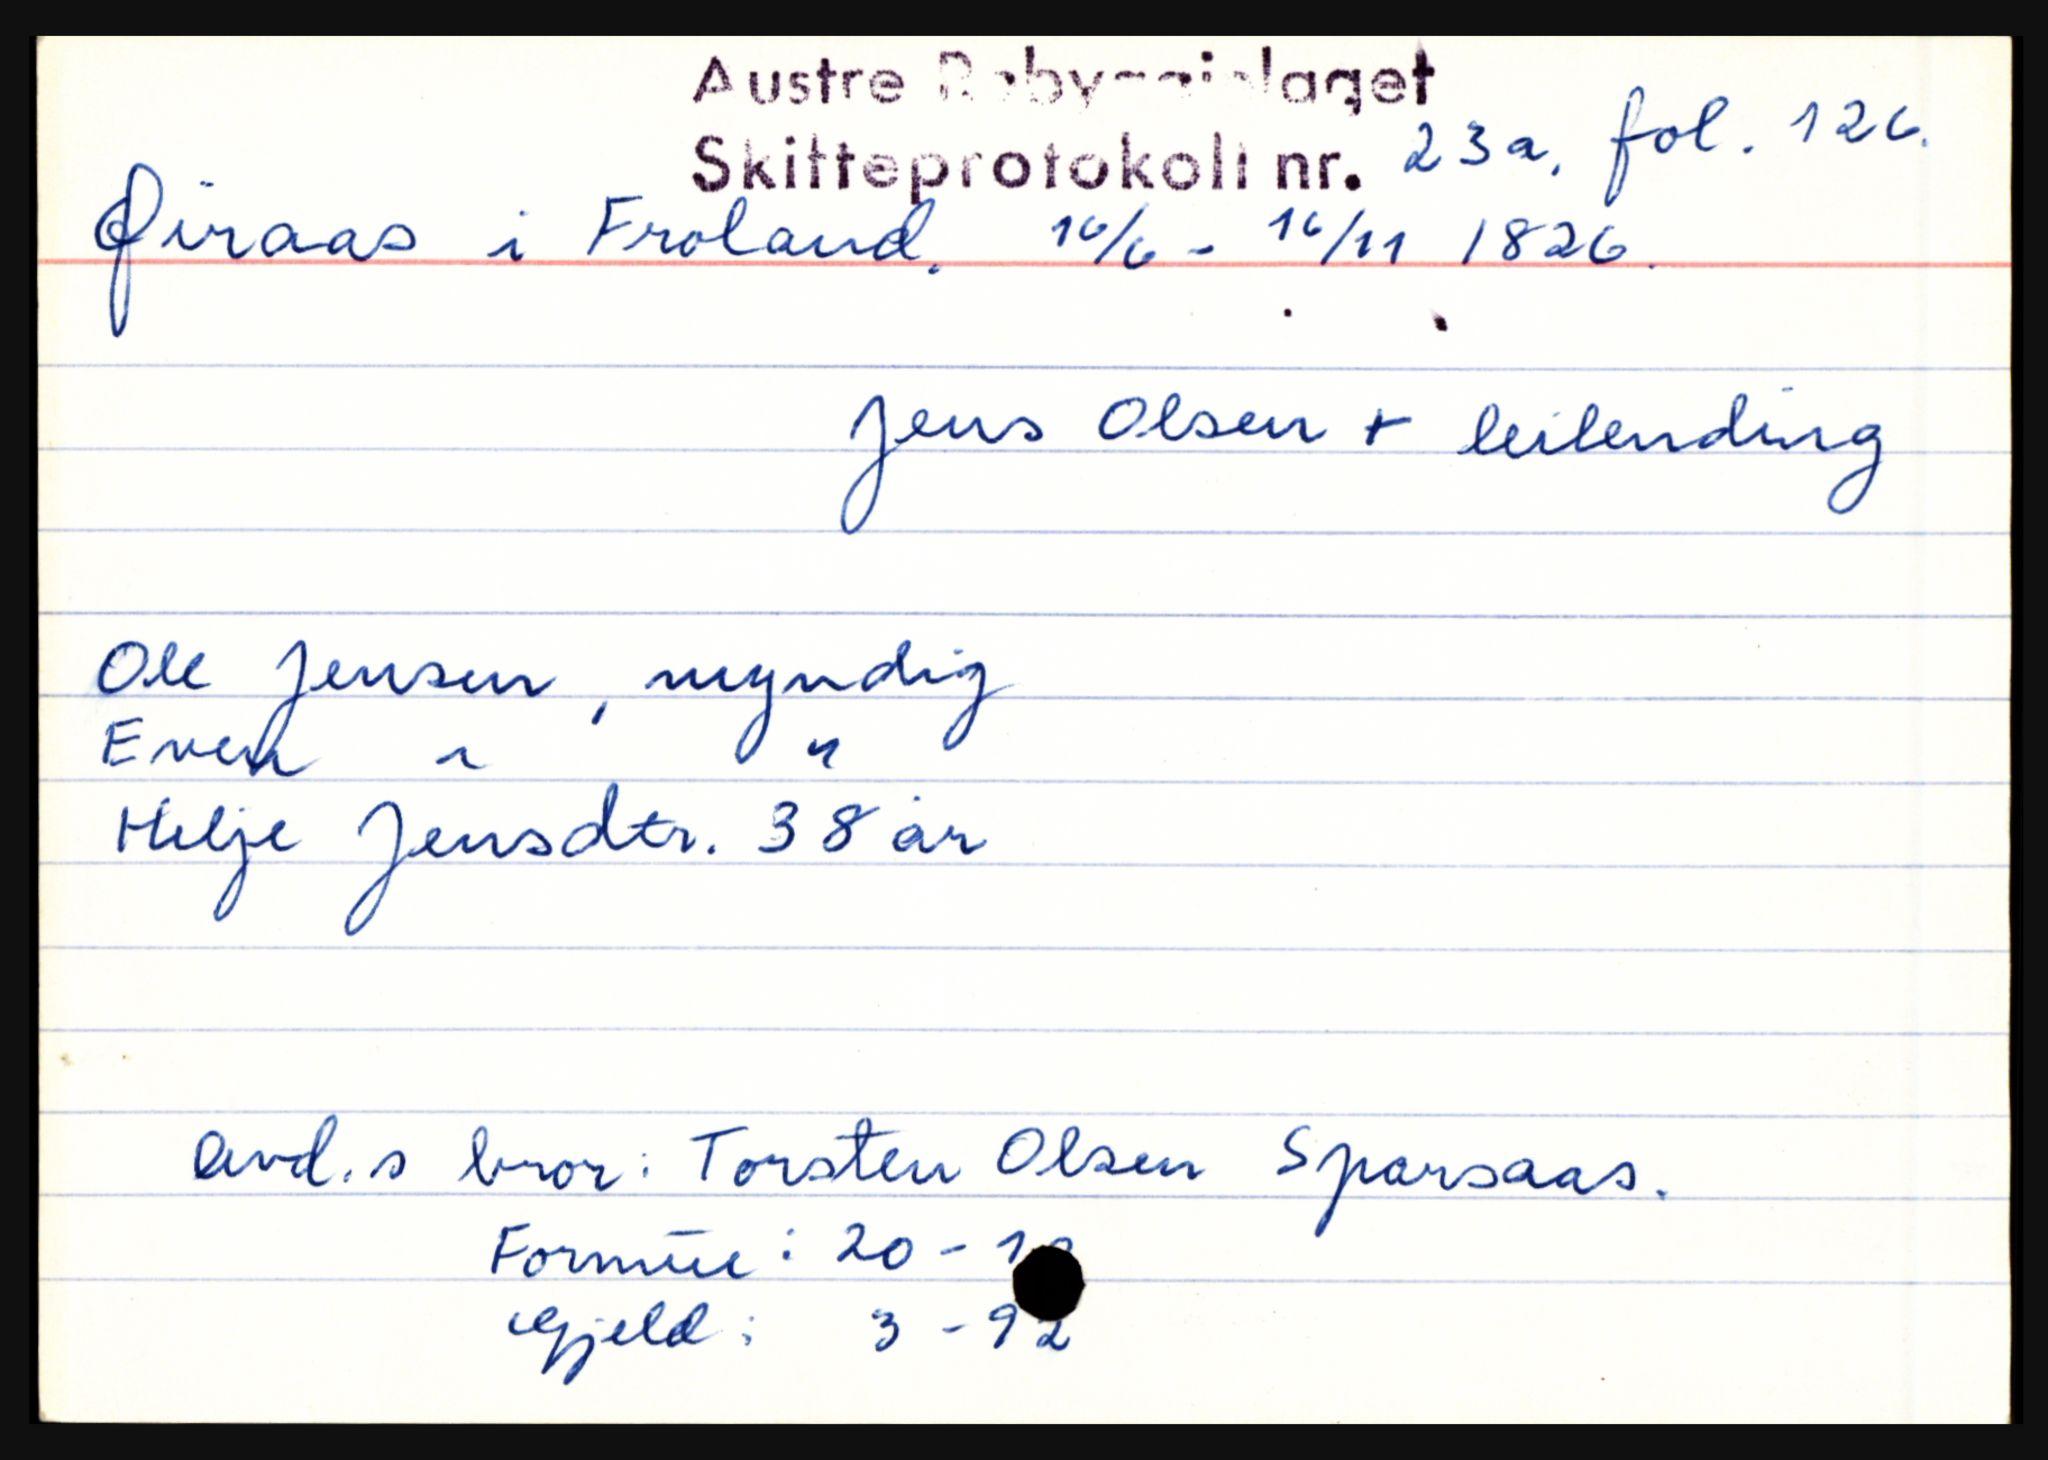 Austre Robyggjelaget
Skifteprotokoll nr. 23a, fol. 126.
Øiraas i Froland. 16/6 - 16/11 1826.
Jens Olsen + leilending
Ole Jensen, myndig
Even " "
Helje Jensdtr. 38 år
Avd.s bror: Torsten Olsen Sparsaas.
Formue: 20 -
Gjeld: 3 - 92